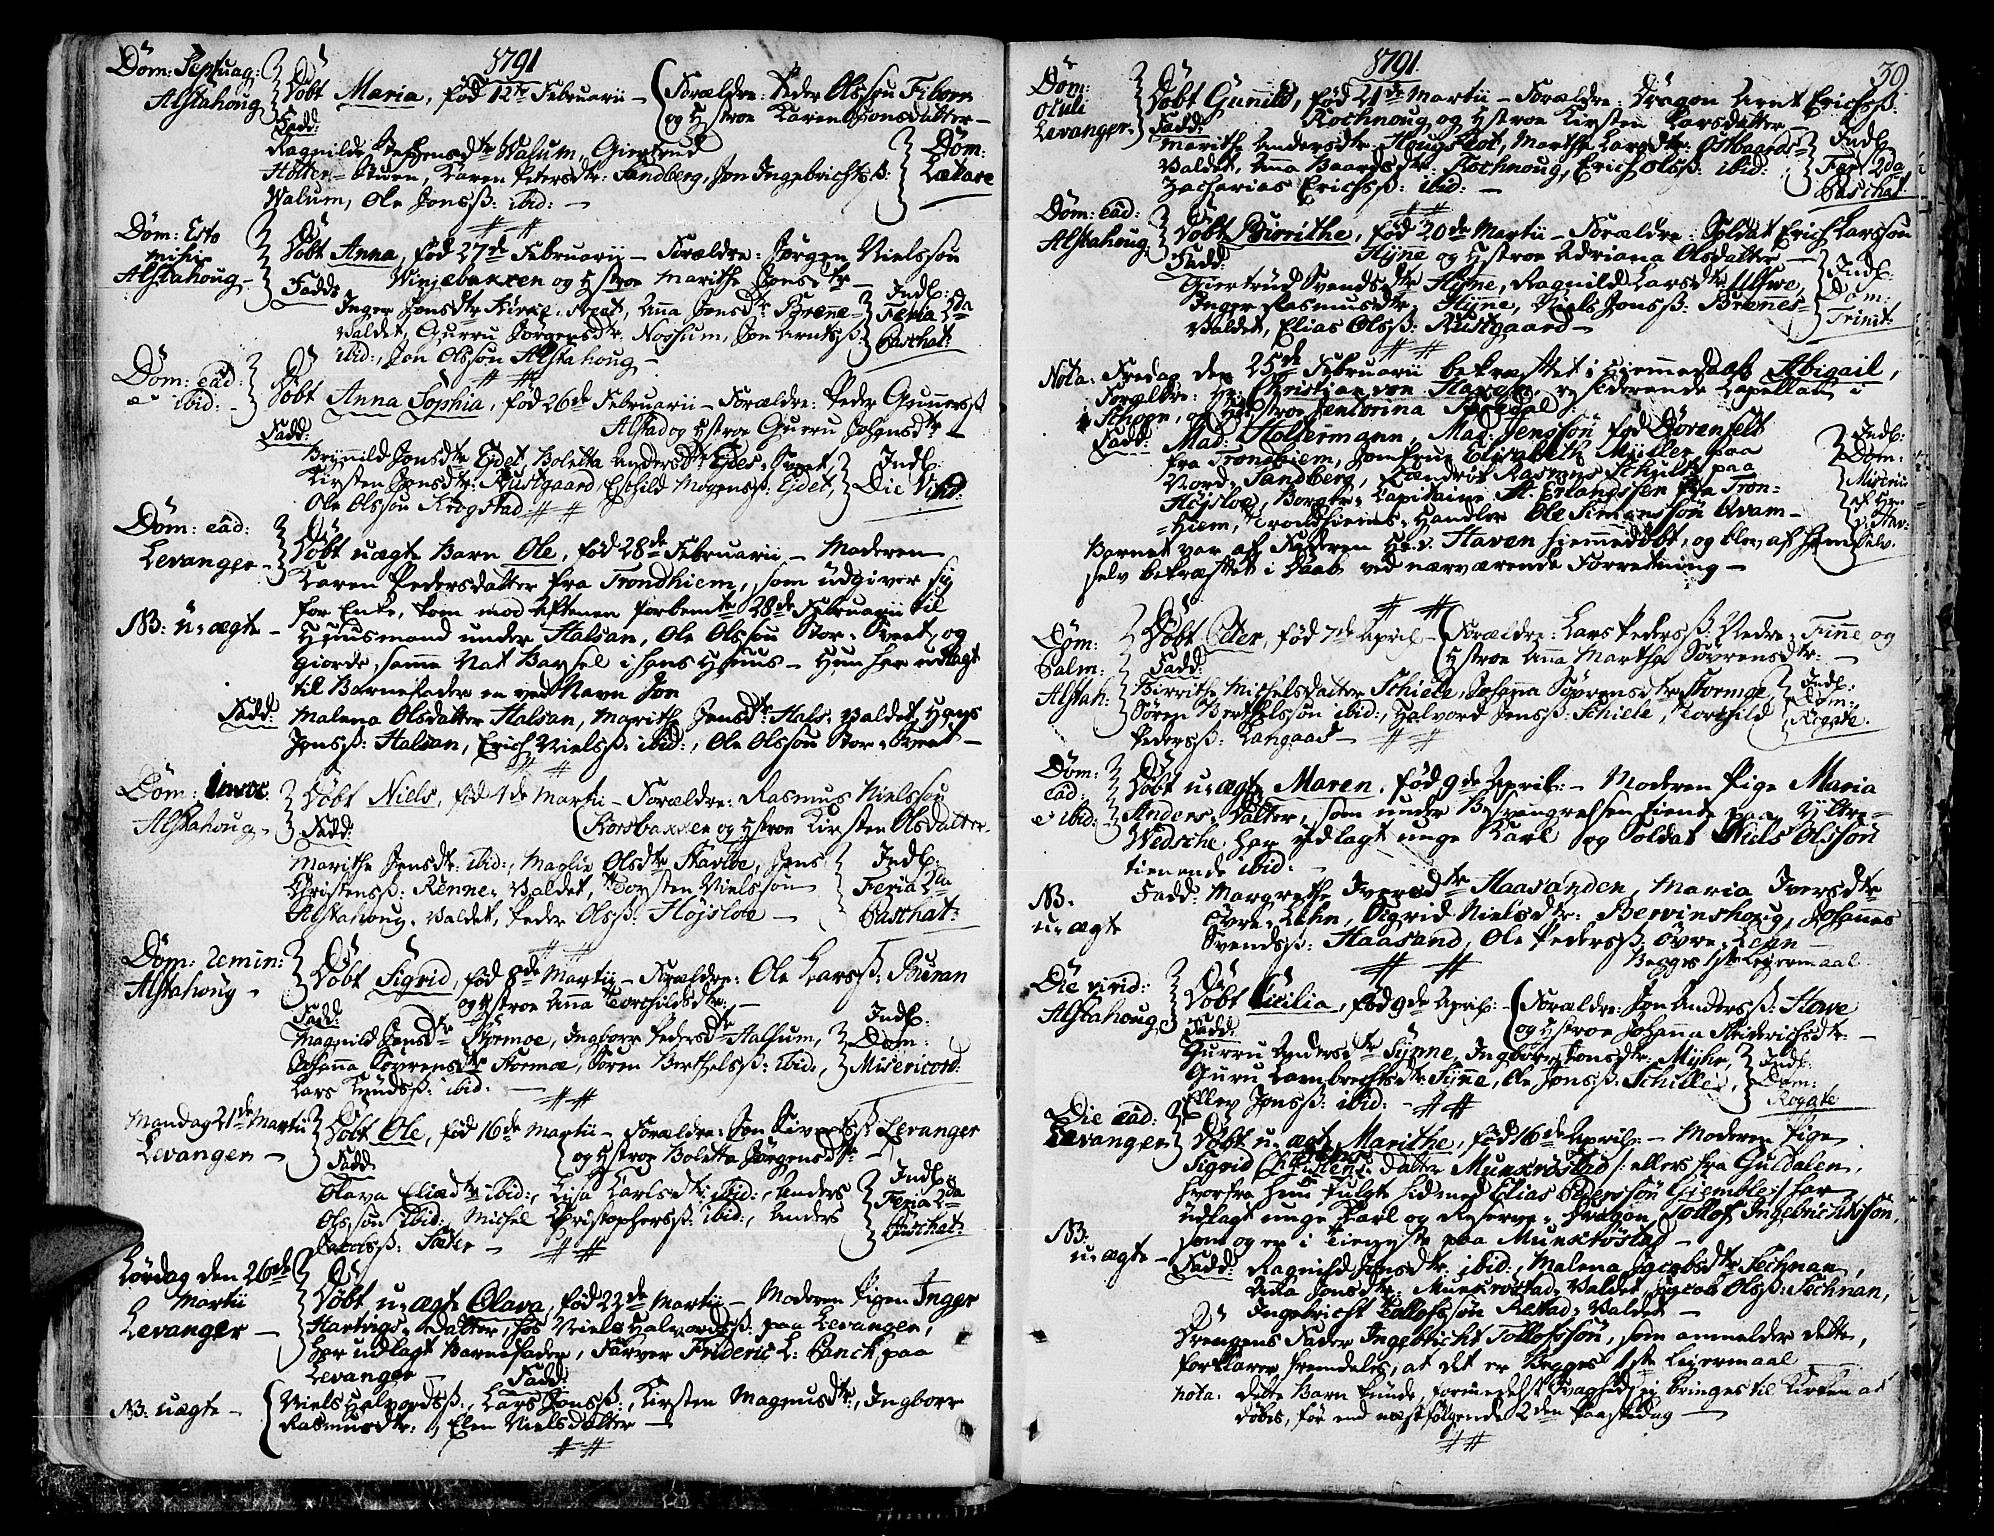 1791
Dom: Septuag:
Alstahoug
Døbt Maria, fød 12te Februarii – Forældre: Peder Olssøn Fiborn
og Hstroe Karen Jonsdatter –
Fadd:
Ragnilde Jensdtr Walum, Giertrud
Holter-Auen, Karen Pedersdtr: Sandberg, Jon Ingebrichtsß:
Walum, Ole Jonsß: ibid: –
Dom:
Lætare
Dom: Esto
mihi
Alstahoug –
Døbt Anna, fød 27de Februarii – Forældre: Jørgen Nielssøn
Winjebakken og Hstroe Marithe Jonsdtr –
Fadd:
Inger Jonsdtr Kirke-Sveet, Anna Jonsdtr Brenne-
Valdet, Gurru Jørgensdtr: Noosum, Jon Arntsß:
ibid:, Jon Olssøn Alstahoug –
Indl:
Feria 2da
Paschat:
Dom: ead:
ibid: –
Døbt Anna Sophia, fød 26de Februarii – Forældre: Peder Gunnersß
Alstad og Hstroe Gurru Johansdtr –
Fadd:
Brynild Jonsdtr Ejdet, Boletta Andersdtr Ejdes-Sveet,
Kirsten Jonsdtr: Rustgaard, Eschild Mogensß: Ejdet,
Ole Olssøn Krogstad
Indl:
Die Virid:
Dom: ead:
Levanger –
Døbt uægte Barn Ole, fød 28de Februarii – Moderen
Karen Pedersdatter fra Trondhiem, som udgiver sig
for Enke, kom mod Aftenen forbemte 28de Februarii til
NB: u-ægte –
Huusmand under Halsan, Ole Olssøn Stor-Sveet, og
giorde samme Nat Barsel i hans Huus – Hun har udlagt
til Barnefader en ved Navn Jon
Fadd: Malena Olsdatter Halsan, Marith Jonsdtr: Hals-Valdet, Hans
Jonsß: Halsan, Erich Nielsß: ibid:, Ole Olssøn Stor-Sveet –
Dom: Invoc:
Alstahoug –
Døbt Niels, fød 1de Martii – Forældre: Rasmus Nielssøn
Korsbakken og Hstroe Kirsten Olsdatter
Fadd:
Marithe Jonsdtr: ibid:, Maglie Olsdtr Stavloe, Jens
Christensß: Renne-Valdet, Torsten Nielssøn
Alstahoug-Valdet, Peder Olsß: Højsloe –
Indl:
Feria 2da
Paschat:
Dom: Remin:
Alstahoug –
Døbt Sigrid, fød 8de Martii – Forældre: Ole Larsß: Buran
og Hstroe Anna Torchildsdtr: –
Fadd:
Magnild Jonsdtr Stormoe, Ingborr Pedersdtr Halsum,
Johanna Sövrensdtr Stormoe, Søren Berthelsß: ibid:,
Lars Knudsß: ibid: –
Indl:
Dom:
Misericord:
Mandag 21de Martii
Levanger –
Døbt Ole, fød 16de Martii – Forældre: Jon Sivertsß: Levanger
og Hstroe Boletta Jørgensdtr –
Fadd:
Olava Eliædtr ibid:, Lisa Karlsdtr: ibid:, Anders
Olssøn ibid:, Michel Christophersß: ibid:, Anders
Jacobsß: Sæter –
Indl:
Feria 2da
Paschat:
Lørdag den 26de
Martii
Levanger –
Døbt u-ægte Olava, fød 22de Martii – Moderen Pigen Inger
Hartvigs-Datter, hos Niels Halvordsß: paa Levanger,
har udlagt Barnefader, Farver Frideric L: Panck paa
Levanger –
Fadd:
NB: uægte –
Niels Halvordsß:, Lars Jonsß:, Kirsten Magnusdtr:, Ingborr
Rasmusdtr:, Elen Nielsdatter –
1791
39.
Dom:
Oculi
Levanger:
Døbt Gunild, fød 21de Martii – Forældre: Dragon Arnt Erichsß:
Rochnoug og Hstroe Kirsten Larsdatter –
Fadd:
Marithe Andersdtr: Hougslot, Marthe Larsdtr: Ostbaards-
Valdet, Anna Baardsdtr: Rochnoug, Erich Olsß: ibid:,
Zacharias Erichsß: ibid: –
Indl:
Fer: 2da
Paschat:
Dom: ead:
Alstahoug
Døbt Birrithe, fød 20de Martii – Forældre: Soldat Erich Larssøn
Hynne og Hstroe Adriana Olsdatter –
Fadd:
Giertrud Svendsdtr Hynne, Ragnild Larsdtr Ulwe,
Inger Rasmusdtr: Hynne, Niels Jonsß: Brennes-
Valdet, Elias Olsß: Rustgaard –
Indl:
Dom:
Trinit:
Nota. Fredag den 25de Februarii bekræftet i Hiemmedaab Abigail,
Forældre: Hr: Christian von Haven, residerende Capellan i
Schogn, og Hustroe Jentorina Bredal
Fadd: Mad: Holtermann, Mad: Jenssøn fød Dorenfelt
fra Trondhiem, Jomfrue Elisabeth Müller, paa
Nord-Sandberg, Lændret Rasmus Schult paa
Højsloe, Borger-Capitaine H. Erlandssen fra Tron-
-hiem, Trondhiems-Handler Ole Simonssøn Qvam –
Barnet var af Faderen Hr. v. Haven hiemmedøbt, og blev af ham
selv bekræftet i Daab ved nærværende Forretning –
Indl:
Dom:
Miseric:
af Hr:
v: Hav:
selv.
Dom:
Palm:
Alstah:
Døbt Peter, fød 7de April – Forældre: Lars Pedersß: Nedre-Finne og
Hstroe Anna Martha Sövrensdtr: –
Fadd:
Birrithe Michelsdatter Schiele, Johanna Sörensdtr Stormoe,
Søren Berthelssøn ibid:, Halvord Jensß: Schiele, Torchild
Pedersß: Langaas –
Indl:
Dom:
Rogate.
Dom:
ead:
ibid:
Døbt u-ægte Maren, fød 9de April: – Moderen Pige Maria
Anders-Datter, som under Besvangrelsen tiente paa Yttre-
Wedsche har udlagt unge Karl og Soldat Niels Olssøn
tienende ibid: –
NB.
u-ægte
Fadd: Margrethe Iversdtr Haasanden, Maria Iversdtr
Øvre-Lehn, Sigrid Nielsdtr: Bervinshoug, Johannes
Svendsß: Haasand, Ole Pedersß: Øvre-Lehn –
Begges 1ste Lejermaal
Die virid:
Alstahoug
Døbt Cicilia, fød 9de April: – Forældre: Jon Andersß: Howe
og Hstroe Johanna Friderichsdtr: –
Fadd:
Gurru Andersdtr Synne, Ingborr Jonsdtr: Myhr,
Guru Lambrechtsdtr Synne, Ole Jonsß: Schille,
Ellev Jonsß: ibid: –
Indl:
Dom:
Rogate
Die ead:
Levanger
Døbt u-ægte Marithe, fød 16de April: – Moderen Pige
Sigrid Christens-Datter Munkrøstad /: ellers fra Guldalen,
hvorfra hun fulgte hid med Elias Pederssøn Giemble :/ har
udlagt unge Karl og Reserve-Dragon Tollof Ingebrichtssøn,
som og er i Tieneste paa Munkrøstad –
NB:
u-ægte –
Fadd: Ragnild Jonsdtr ibid:, Malena Jacobsdtr Fechnan,
Anna Jonsdtr: Munkrøstad-Valdet, Jacob Olsß: Fechnan,
Ingebricht Tollofssøn Restad-Valdet –
Drengens Fader Ingebricht Tollofssøn, som anmelder dette,
forklarer fremdeles, at det er Begges 1ste Lejermaal
nota: Dette Barn kunde, formedelst Svaghed, ej bringes til Kirken at
døbes, før end næstfølgende 2den Paaskedag –